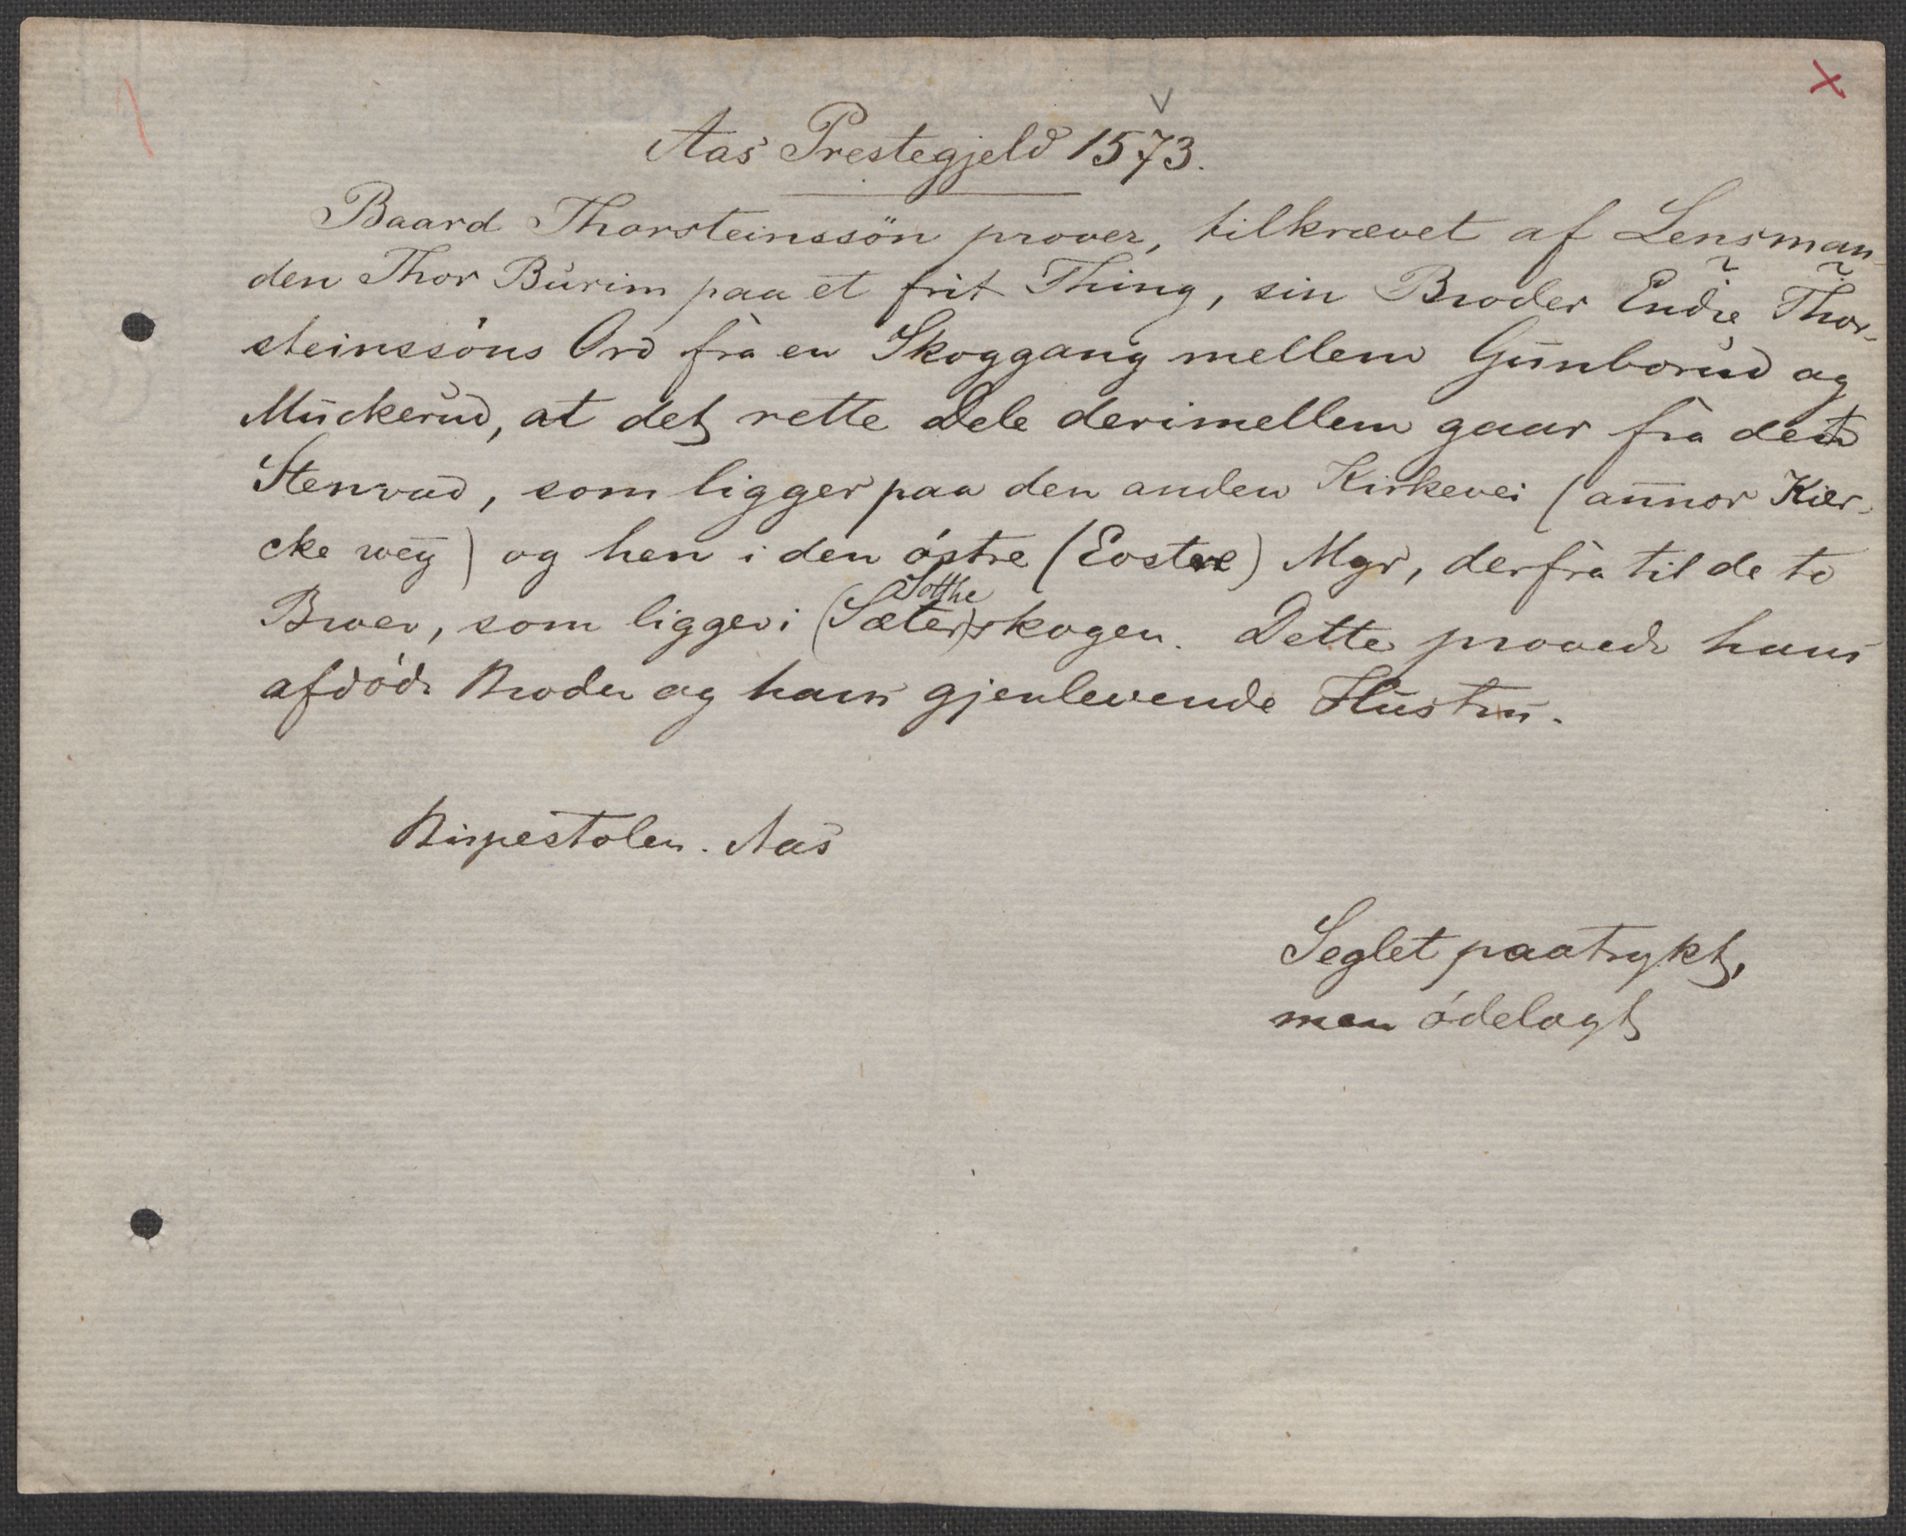 Aas Prestegjeld 1573.
Baard Thorsteinssön prover, tilkrævet af Lensman-
den Thor Burim paa et frit Thing, sin Broder Endre Thor-
steinssöns Ord fra en Skoggang mellem Gunborud og
Muckerud, at det rette Dele derimellem gaar fra det
Stenvad, som ligger paa den anden Kirkevei (annor Kier-
cke weÿ) og hen i den östre (Eostere) Myr, derfra til de to
Broer, som ligger i (Sæter)skogen. Dette provede hans
Sotthe
afdöde Broder og hans gjenlevende Hustru.
Bispestolen. Aas
Seglet paatrykt,
men ödelagt